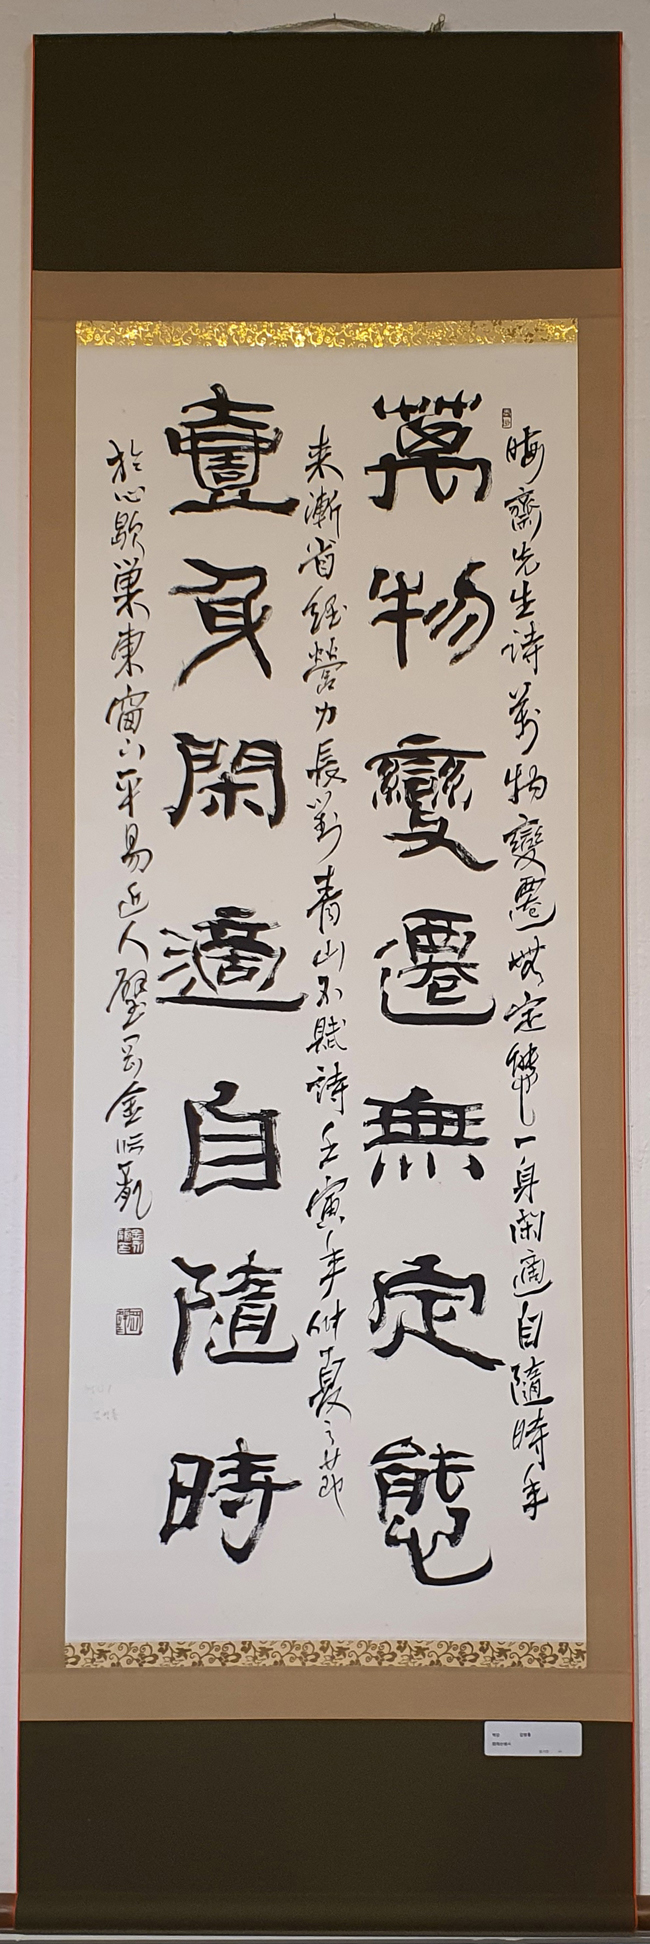 晦齋先生詩萬物變遷無定態一身閑適自隨時年
萬物變遷無定態
来漸省經營力長對青山不賦詩壬寅年仲夏之節
壹身閑適自隨時
於心歇巢東窗下平易近人 金